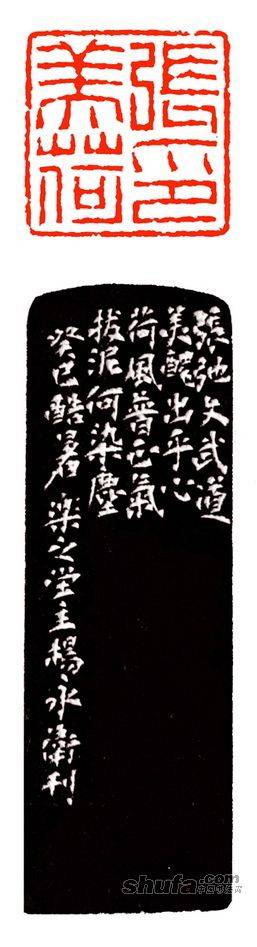 張印
美荷
張弛文武道
美醜出乎心
荷風普正氣
拔泥何染塵
癸巳酷暑樂之堂主楊永衛刊
shufa.com